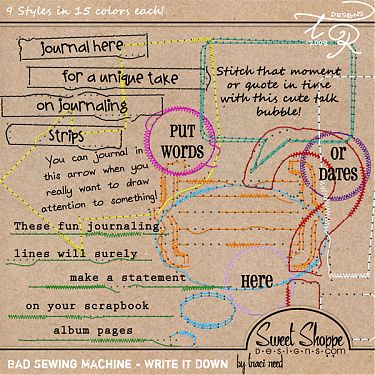 9 Styles in 15 colors each!
DESIGNS
journal here
for a unique take
on journaling
strips
Stitch that moment
or quote in time
with this cute talk
bubble!
PUT
WORDS
OR
DATES
You can journal in
this arrow when you
really want to draw
attention to something!
These fun journaling
lines will surely
make a statement
on your scrapbook
album pages
HERE
Sweet Shoppe
Designs.com
BAD SEWING MACHINE - WRITE IT DOWN by traci reed